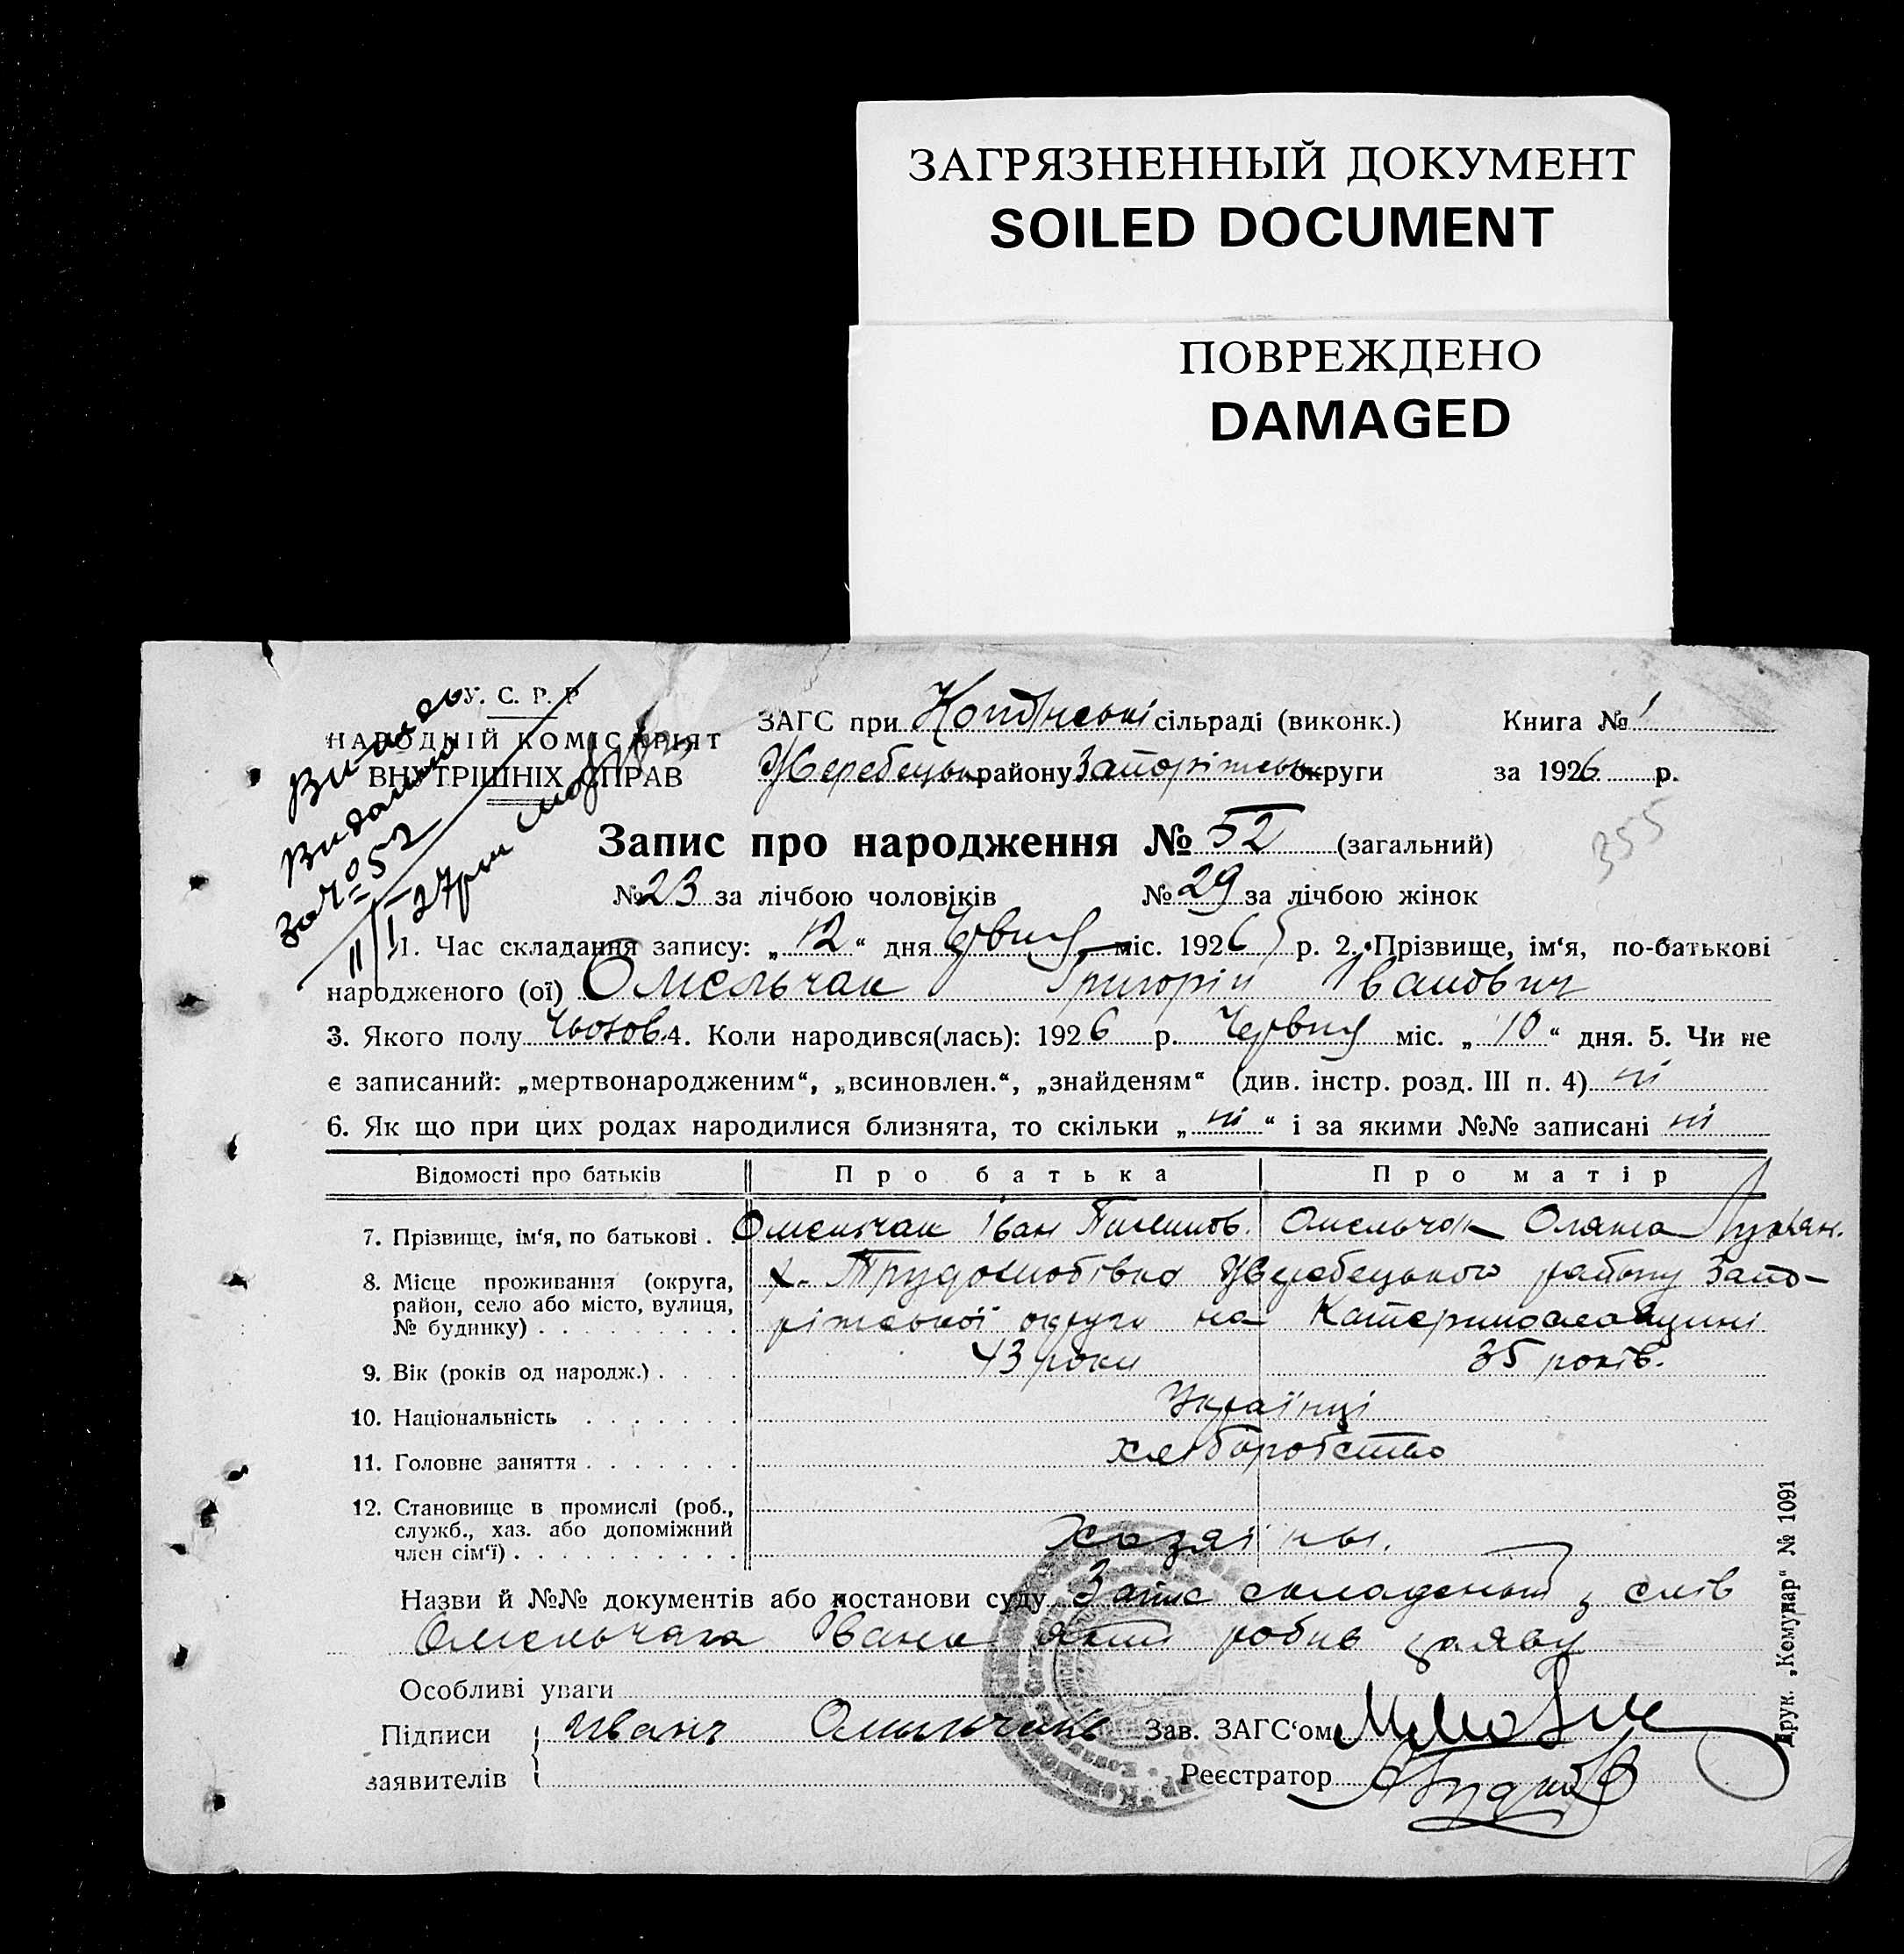 ЗАГРЯЗНЕННЫЙ ДОКУМЕНТ
SOILED DOCUMENT
ПОВРЕЖДЕНО
DAMAGED
У. С. Р. Р
НАРОДНІЙ КОМІСАРІЯТ
ВНУТРІШНІХ СПРАВ
ЗАГС при сільраді (виконк.) Книга № 1
Жеребецьк району Запоріжськ округи за 1926 р.
Запис про народження № 52 (загальний)
355
№ 23 за лічбою чоловіків № 29 за лічбою жінок
1. Час складання запису: „ 12 “ дня Червня міс. 1926 р. 2. Прізвище, ім‘я, по-батькові
народженого (ої) Омельчак Григорій Іванович
3. Якого полу чолов. 4. Коли народився(лась): 1926 р. Червня міс. „ 10 “ дня. 5. Чи не
є записаний: „мертвонародженим“, „всиновлен.“, „знайденям“ (див. інстр. розд. III п. 4) ні
6. Як що при цих родах народилися близнята, то скільки „ ні “ і за якими №№ записані ні
Відомості про батьків Про батька Про матір
7. Прізвище, ім‘я, по батькові . Омельчак Іван Омельчак Лукян.
8. Місце проживання (округа, район, село або місто, вулиця, № будинку) х. Трудолюбівка Жеребецького району Запо-
ріжської округи на Катеринославщині
9. Вік (років од народж.) 43 роки 35 років.
10. Національність Українці
11. Головне заняття хліборобство
12. Становище в промислі (роб., служб., хаз. або допоміжний член сім‘ї) хазяїны.
Назви й №№ документів або постанови суду Запис складений з слів
Омельчака Івана який робив заяву
Особливі уваги
Підписи Иванъ Зав. ЗАГС‘ом
заявителів Реєстратор
Друк. „Комунар“ № 1091